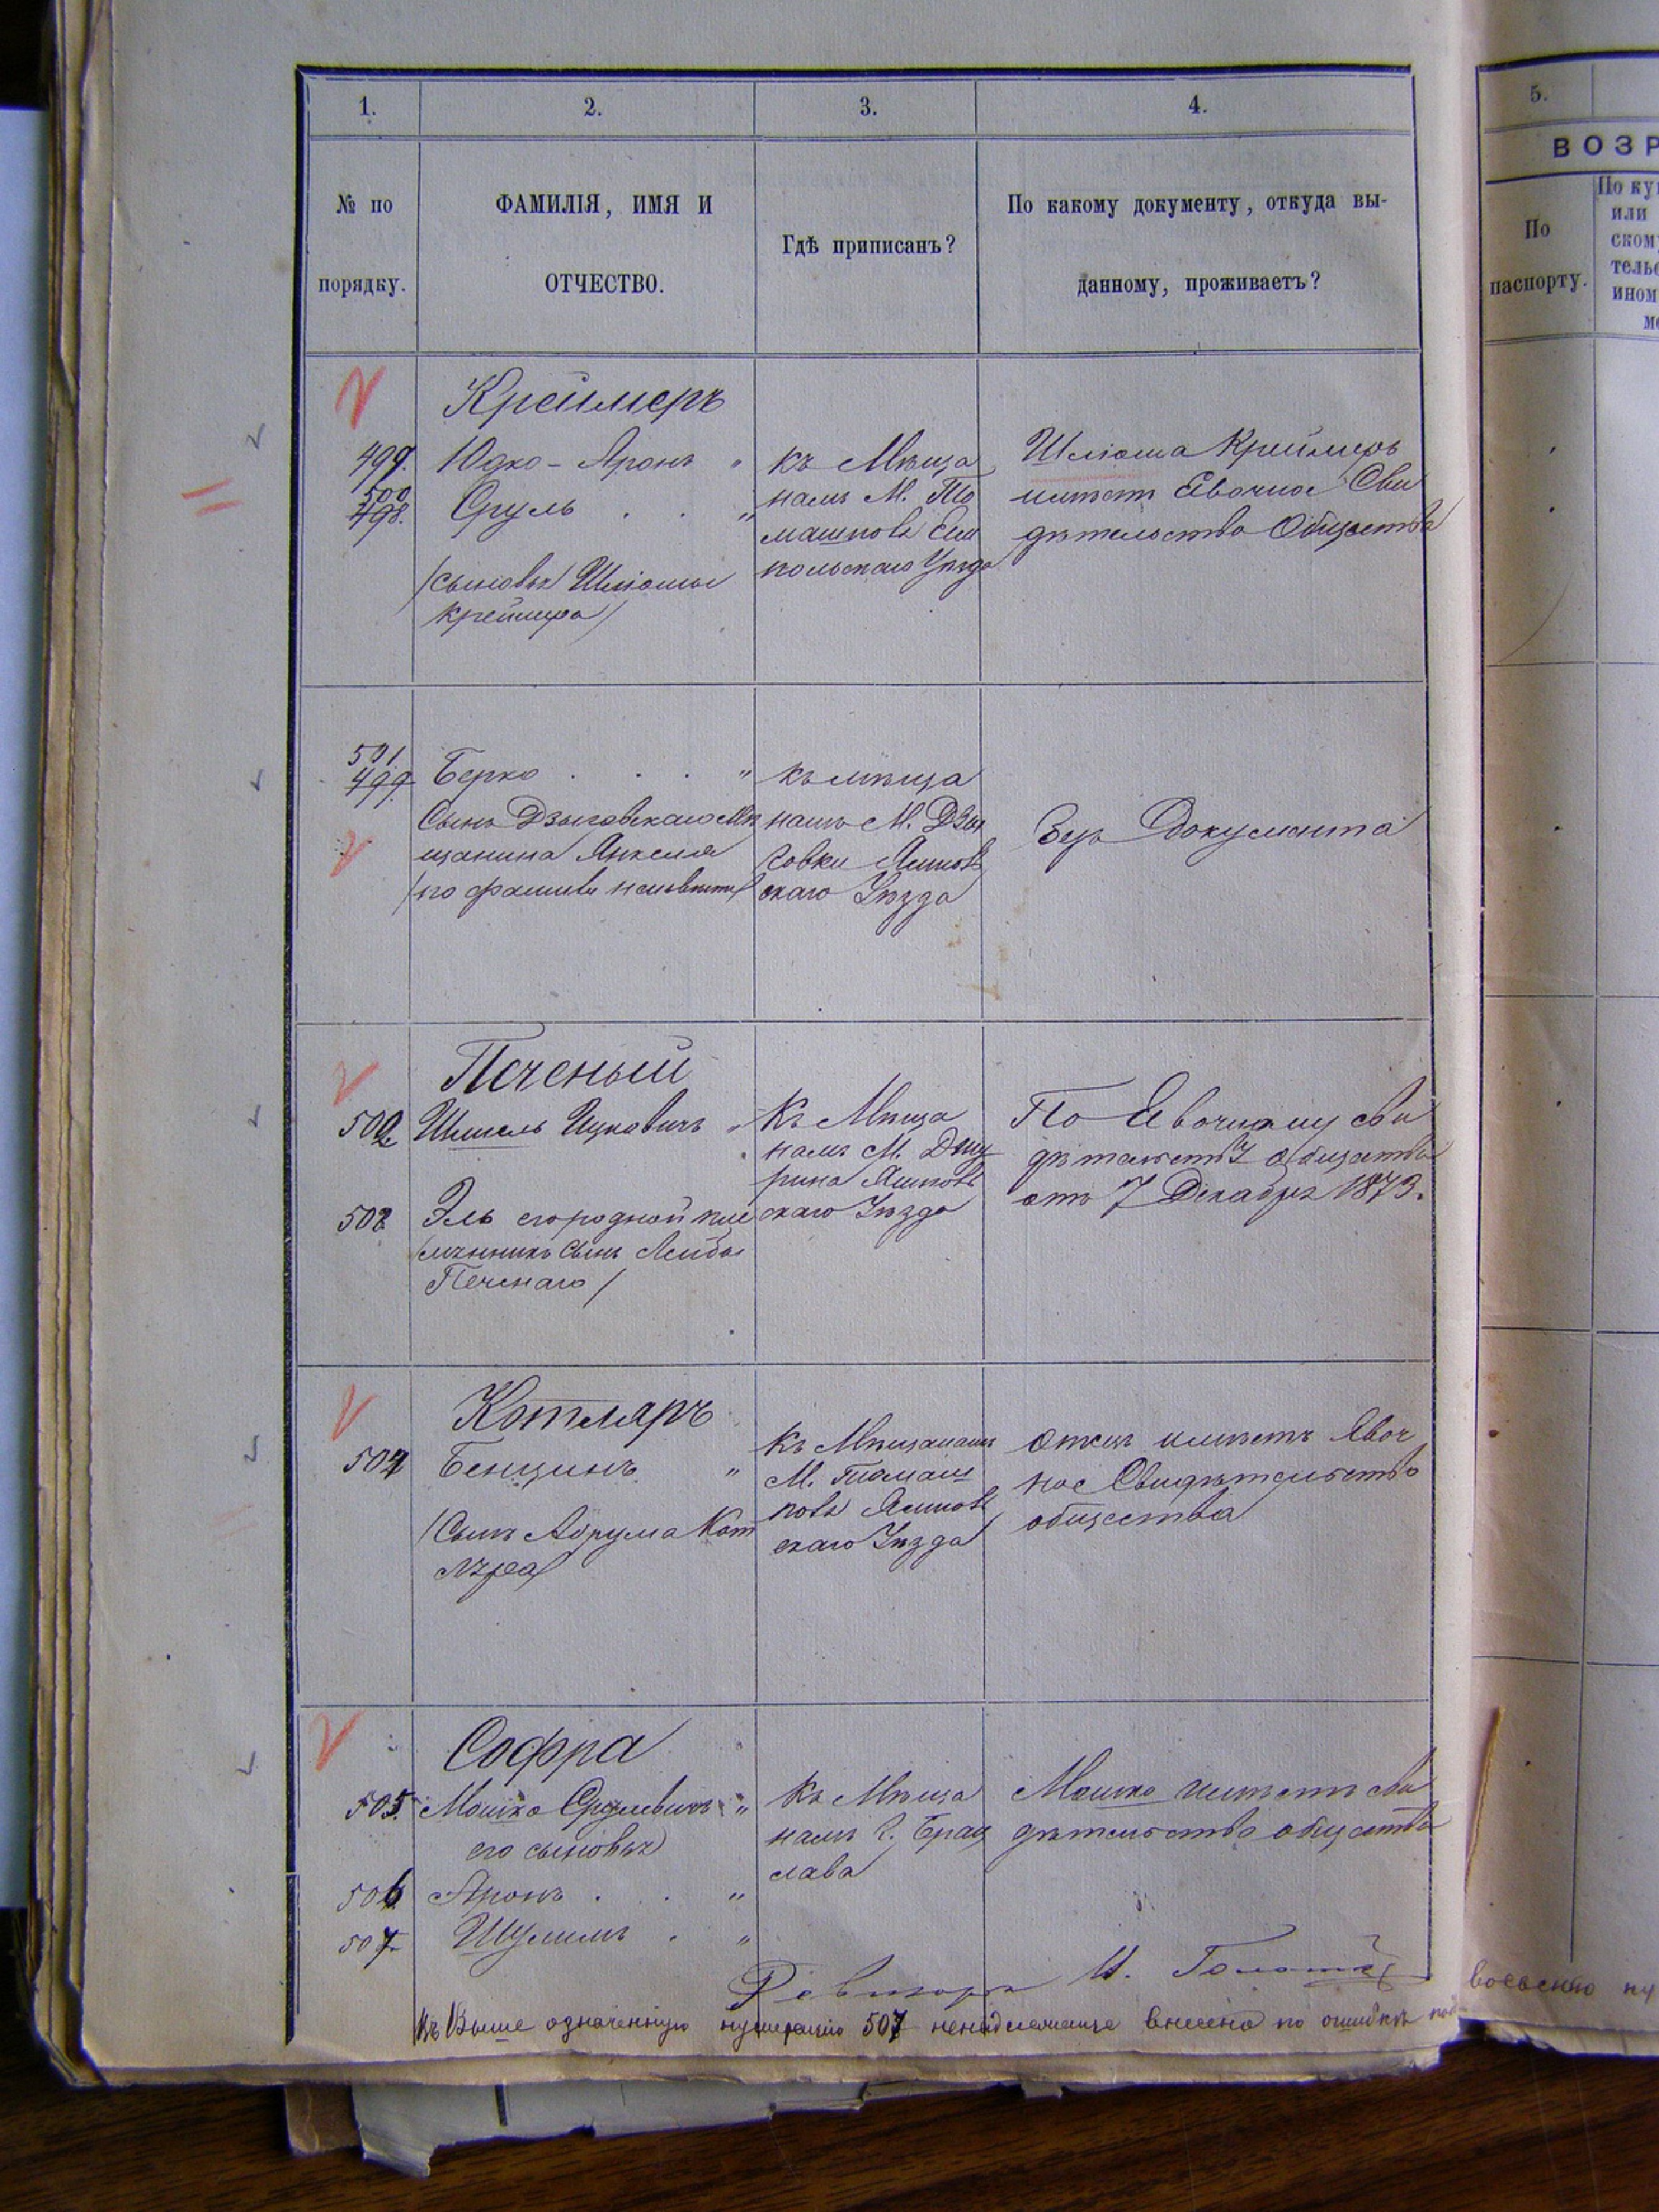 1. 2. 3. 4.
№ по порядку.
ФАМИЛІЯ, ИМЯ И
ОТЧЕСТВО.
Гдѣ приписанъ?
По какому документу, откуда вы-
данному, проживаетъ?
Креймеръ
499. Юдко-Аронъ "
500
498. Сруль . . "
/сыновья Шліомы
Креймера/
Къ Мѣща
намъ М. То
машполя Ям
польскаго Уѣзда
Шліома Креймеръ
имѣетъ Явочное Сви
дѣтельство Общества
501.
499. Берко . . . "
Сынъ Дзыговскаго Мѣ
щанина Янкеля
/по фамиліи неизвѣстн/
къ мѣща
намъ М. Дзы
говки Ямполь
скаго Уѣзда
Безъ Документа
Печеный
502 Шмиль Ицковичъ "
503 Эль его родной пле
/мянникъ Сынъ Лейбы
Печенаго/
Къ Мѣща
намъ М. Джу
рина Ямполь
скаго Уѣзда
По Явочному сви
дѣтельству общества
отъ 7 Декабря 1873.
Котляръ
504 Бенцинъ "
/Сынъ Абрума Кот
ляра/
Къ Мѣщанамъ
М. Томаш
поля Ямполь
скаго Уѣзда
Отецъ имѣетъ Явоч
ное Свидѣтельство
общества
Софра
505. Мошко Срулевичъ "
его сыновья
506. Аронъ . . "
507. Шулимъ . "
Къ Мѣща
намъ г. Брац
лава
Мошко имѣетъ сви
дѣтельство общества
Ревизоръ И.
Къ Выше означенную нумерацію 507 ненадлежаще внесено по ошибкѣ
5.
ВОЗР
По
паспорту.
По ку
или
ском
тельс
ином